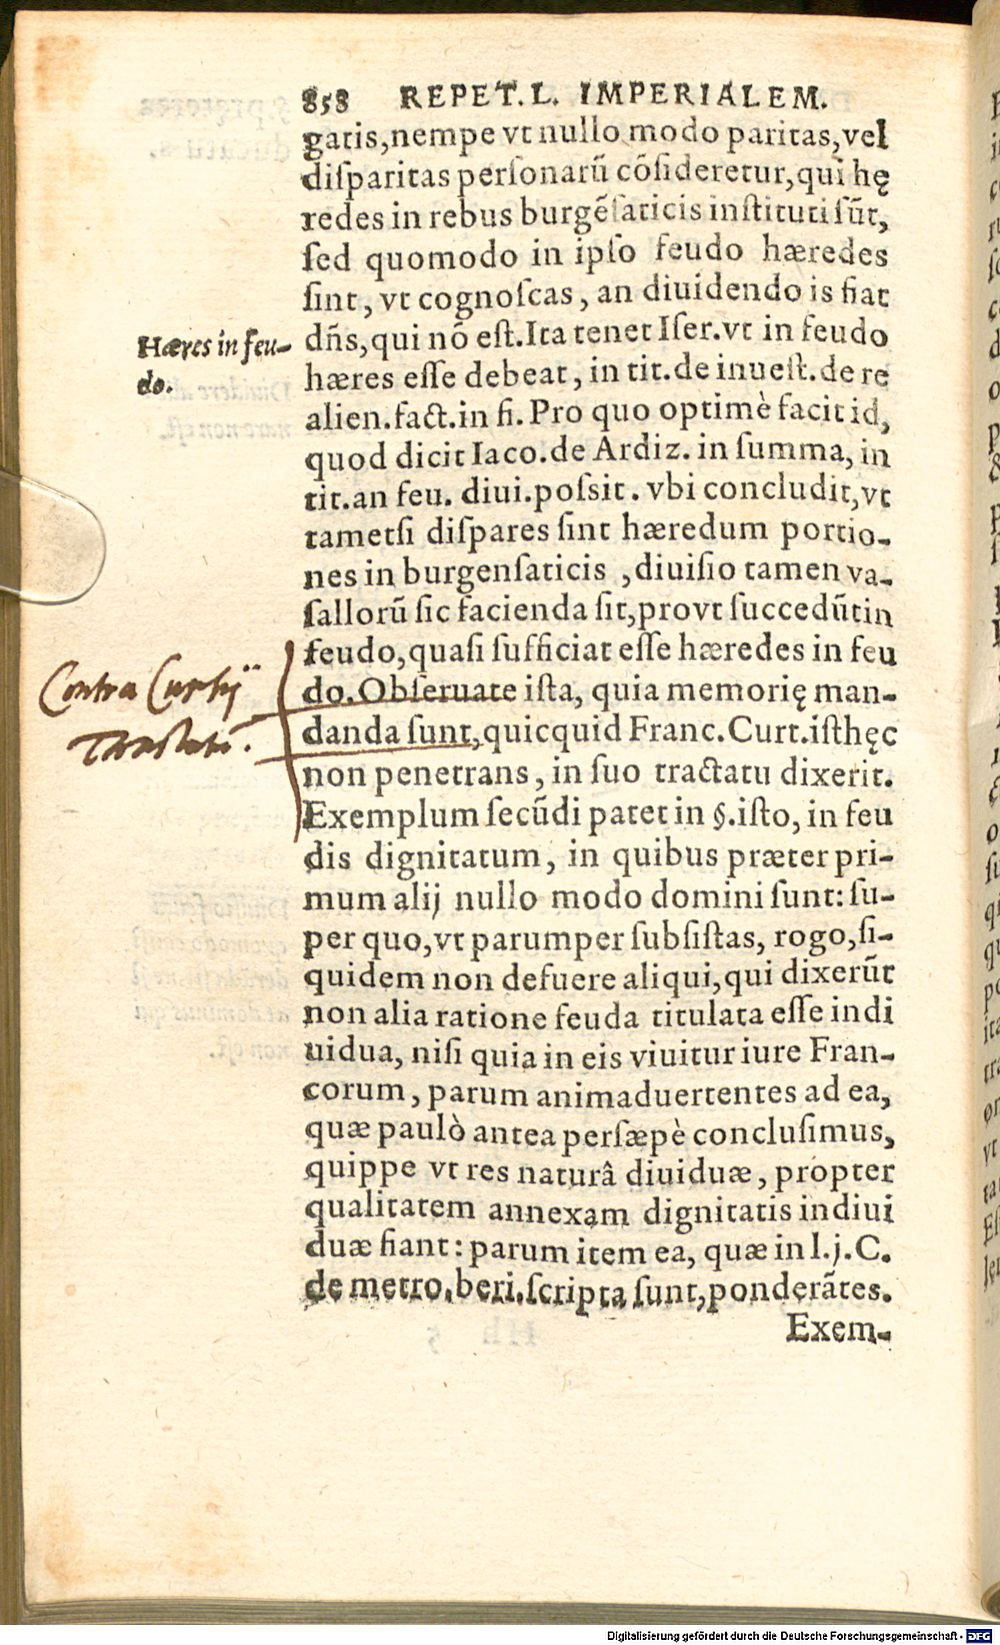 858 REPET. L. IMPERIALEM.
gatis,nempe vt nullo modo paritas,vel
diſparitas perſonarũ cõſideretur,qui hę
redes in rebus burgẽſaticis inſtituti ſũt,
ſed quomodo in ipſo feudo hæredes
ſint, vt cognoſcas, an diuidendo is fiat
Hæres in feu-
do.
dñs,qui nõ eſt.Ita tenet Iſer.vt in feudo
hæres eſſe debeat, in tit.de inueſt.de re
alien.fact.in fi.Pro quo optimè facit id,
quod dicit Iaco.de Ardiz. in ſumma, in
tit.an feu. diui.poſsit. vbi concludit,vt
tametſi diſpares ſint hæredum portio-
nes in burgenſaticis ,diuiſio tamen va-
ſallorũ ſic facienda ſit,provt ſuccedũtin
feudo,quaſi ſufficiat eſſe hæredes in feu
Contra Curtij
Tractatũ.
do.Obſeruate iſta, quia memorię man-
danda ſunt,quicquid Franc.Curt.iſthęc
non penetrans, in ſuo tractatu dixerit.
Exemplum ſecũdi patet in §.iſto, in feu
dis dignitatum, in quibus præter pri-
mum alij nullo modo domini ſunt: ſu-
per quo,vt parumper ſubſiſtas, rogo,ſi-
quidem non defuere aliqui,qui dixerũt
non alia ratione feuda titulata eſſe indi
uidua, niſi quia in eis viuitur iure Fran-
corum, parum animaduertentes ad ea,
quæ paulò antea perſæpè concluſimus,
quippe vt res naturâ diuiduæ, propter
qualitatem annexam dignitatis indiui
duæ fiant: parum item ea, quæ in l.j.C.
de metro.beri.ſcripta ſunt,ponderãtes.
Exem-
Digitalisierung gefördert durch die Deutsche Forschungsgemeinschaft - DFG